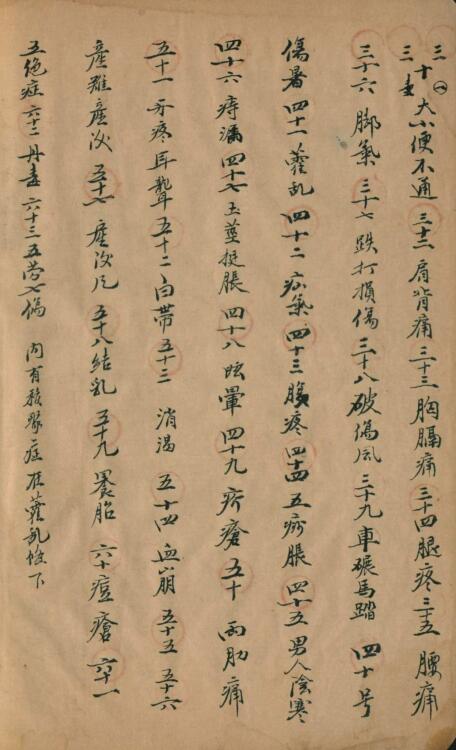 三十㊀ 大小便不通 三十二 肩背痛 三十三 胸膈痛 三十四 腿疼 三十五 腰痛
三十六 脚氣 三十七 跌打損傷 三十八 破傷風 三十九 車碾馬踏 四十号
傷暑 四十一 藿乱 四十二 疝氣 四十三 腹疼 四十四 五痨脹 四十五 男人陰寒
四十六 痔漏 四十七 玉莖挺脹 四十八 眩暈 四十九 疥瘡 五十 両肋痛
五十一 牙疼耳聾 五十二 白帶 五十三 消渴 五十四 血崩 五十五 五十六
產難產後 五十七 產後 五十八 結乳 五十九 胎 六十 痘瘡 六十一
五绝症 六十二 丹毒 六十三 五劳七傷 内有 症在藿乱後下